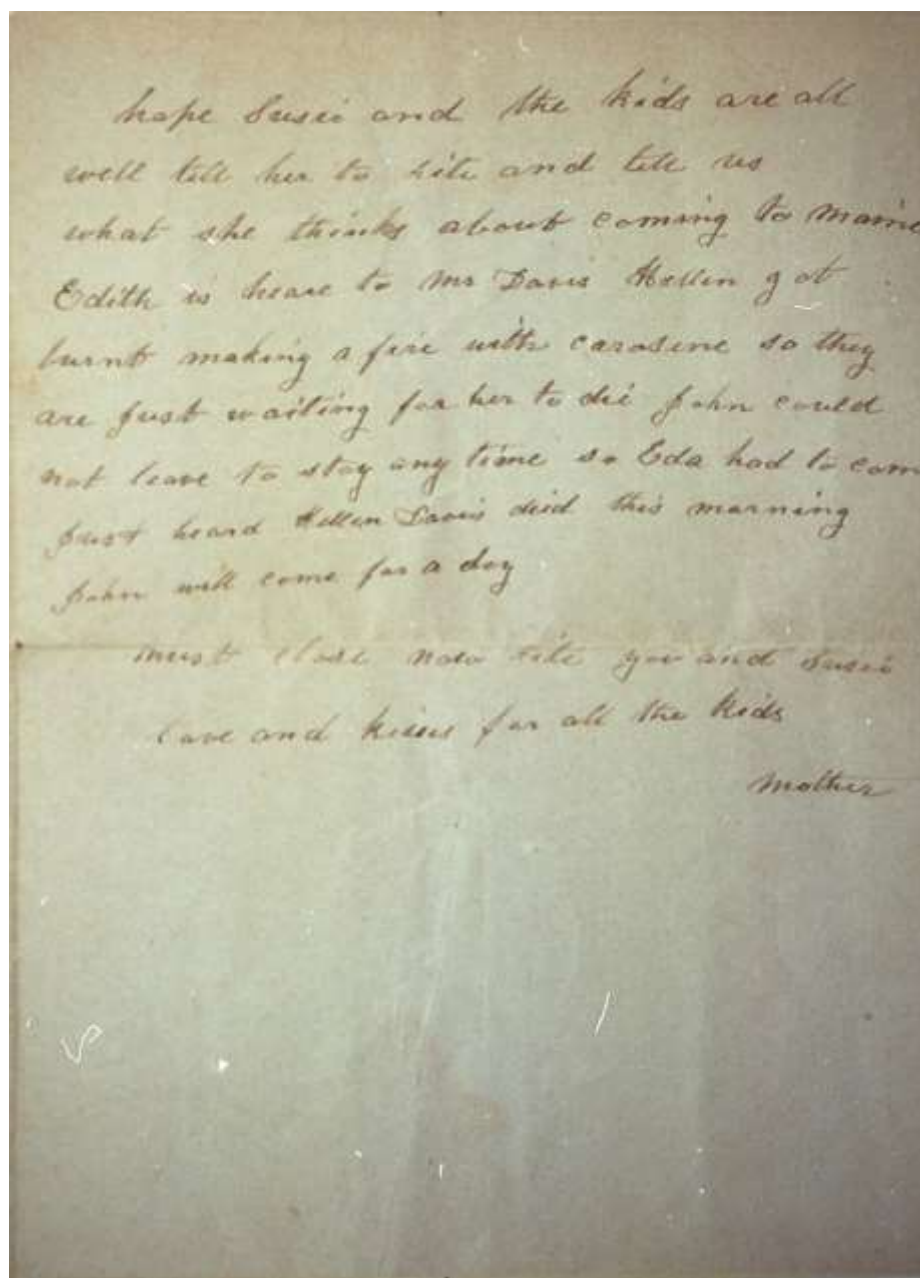 hope Susie and the kids are all
well tell her to rite and tell us
what she thinks about coming to Maine
Edith is heare to Mr Davis Hellen got
burnt making a fire with carosene so they
are just waiting for her to die John could
not leave to stay any time so Eda had to com
just heard Hellen Davis died this morning
John will come for a day
must close now rite you and Susie
love and kisses for all the kids
Mother